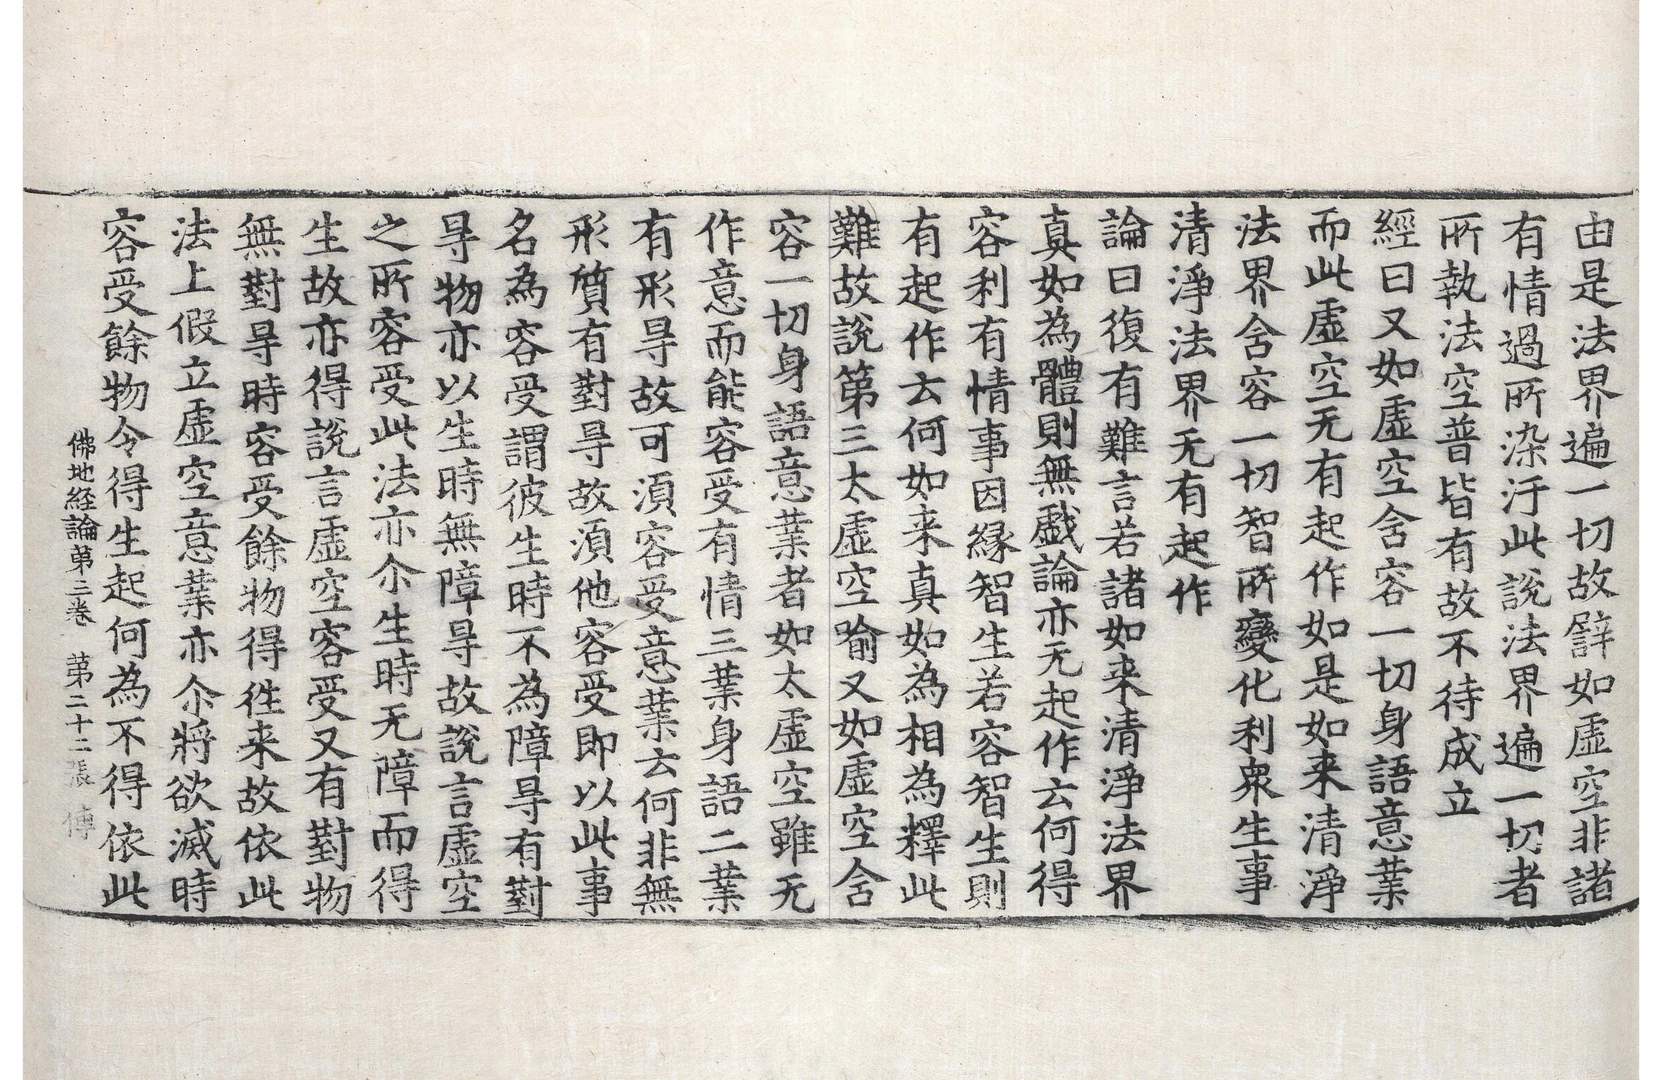 由是法界遍一切故譬如虛空非諸
有情過所染汙此說法界遍一切者
所執法空普皆有故不待成立
經曰又如虛空含容一切身語意業
而此虛空无有起作如是如来清淨
法界含容一切智所變化利衆生事
清淨法界无有起作
論曰復有難言若諸如来清淨法界
真如為體則無戲論亦无起作云何得
容利有情事因緣智生若容智生則
有起作云何如来真如為相為釋此
難故說第三太虛空喻又如虛空含
容一切身語意業者如太虛空雖无
作意而能容受有情三業身語二業
有形㝵故可湏容受意業云何非無
形質有對㝵故湏他容受即以此事
名為容受謂彼生時不為障㝵有對
㝵物亦以生時無障㝵故說言虛空
之所容受此法亦尒生時无障而得
生故亦得說言虛空容受又有對物
無對㝵時容受餘物得徃来故依此
法上假立虛空意業亦尒將欲滅時
容受餘物令得生起何為不得依此
佛地経論第三卷 第二十二張 傅